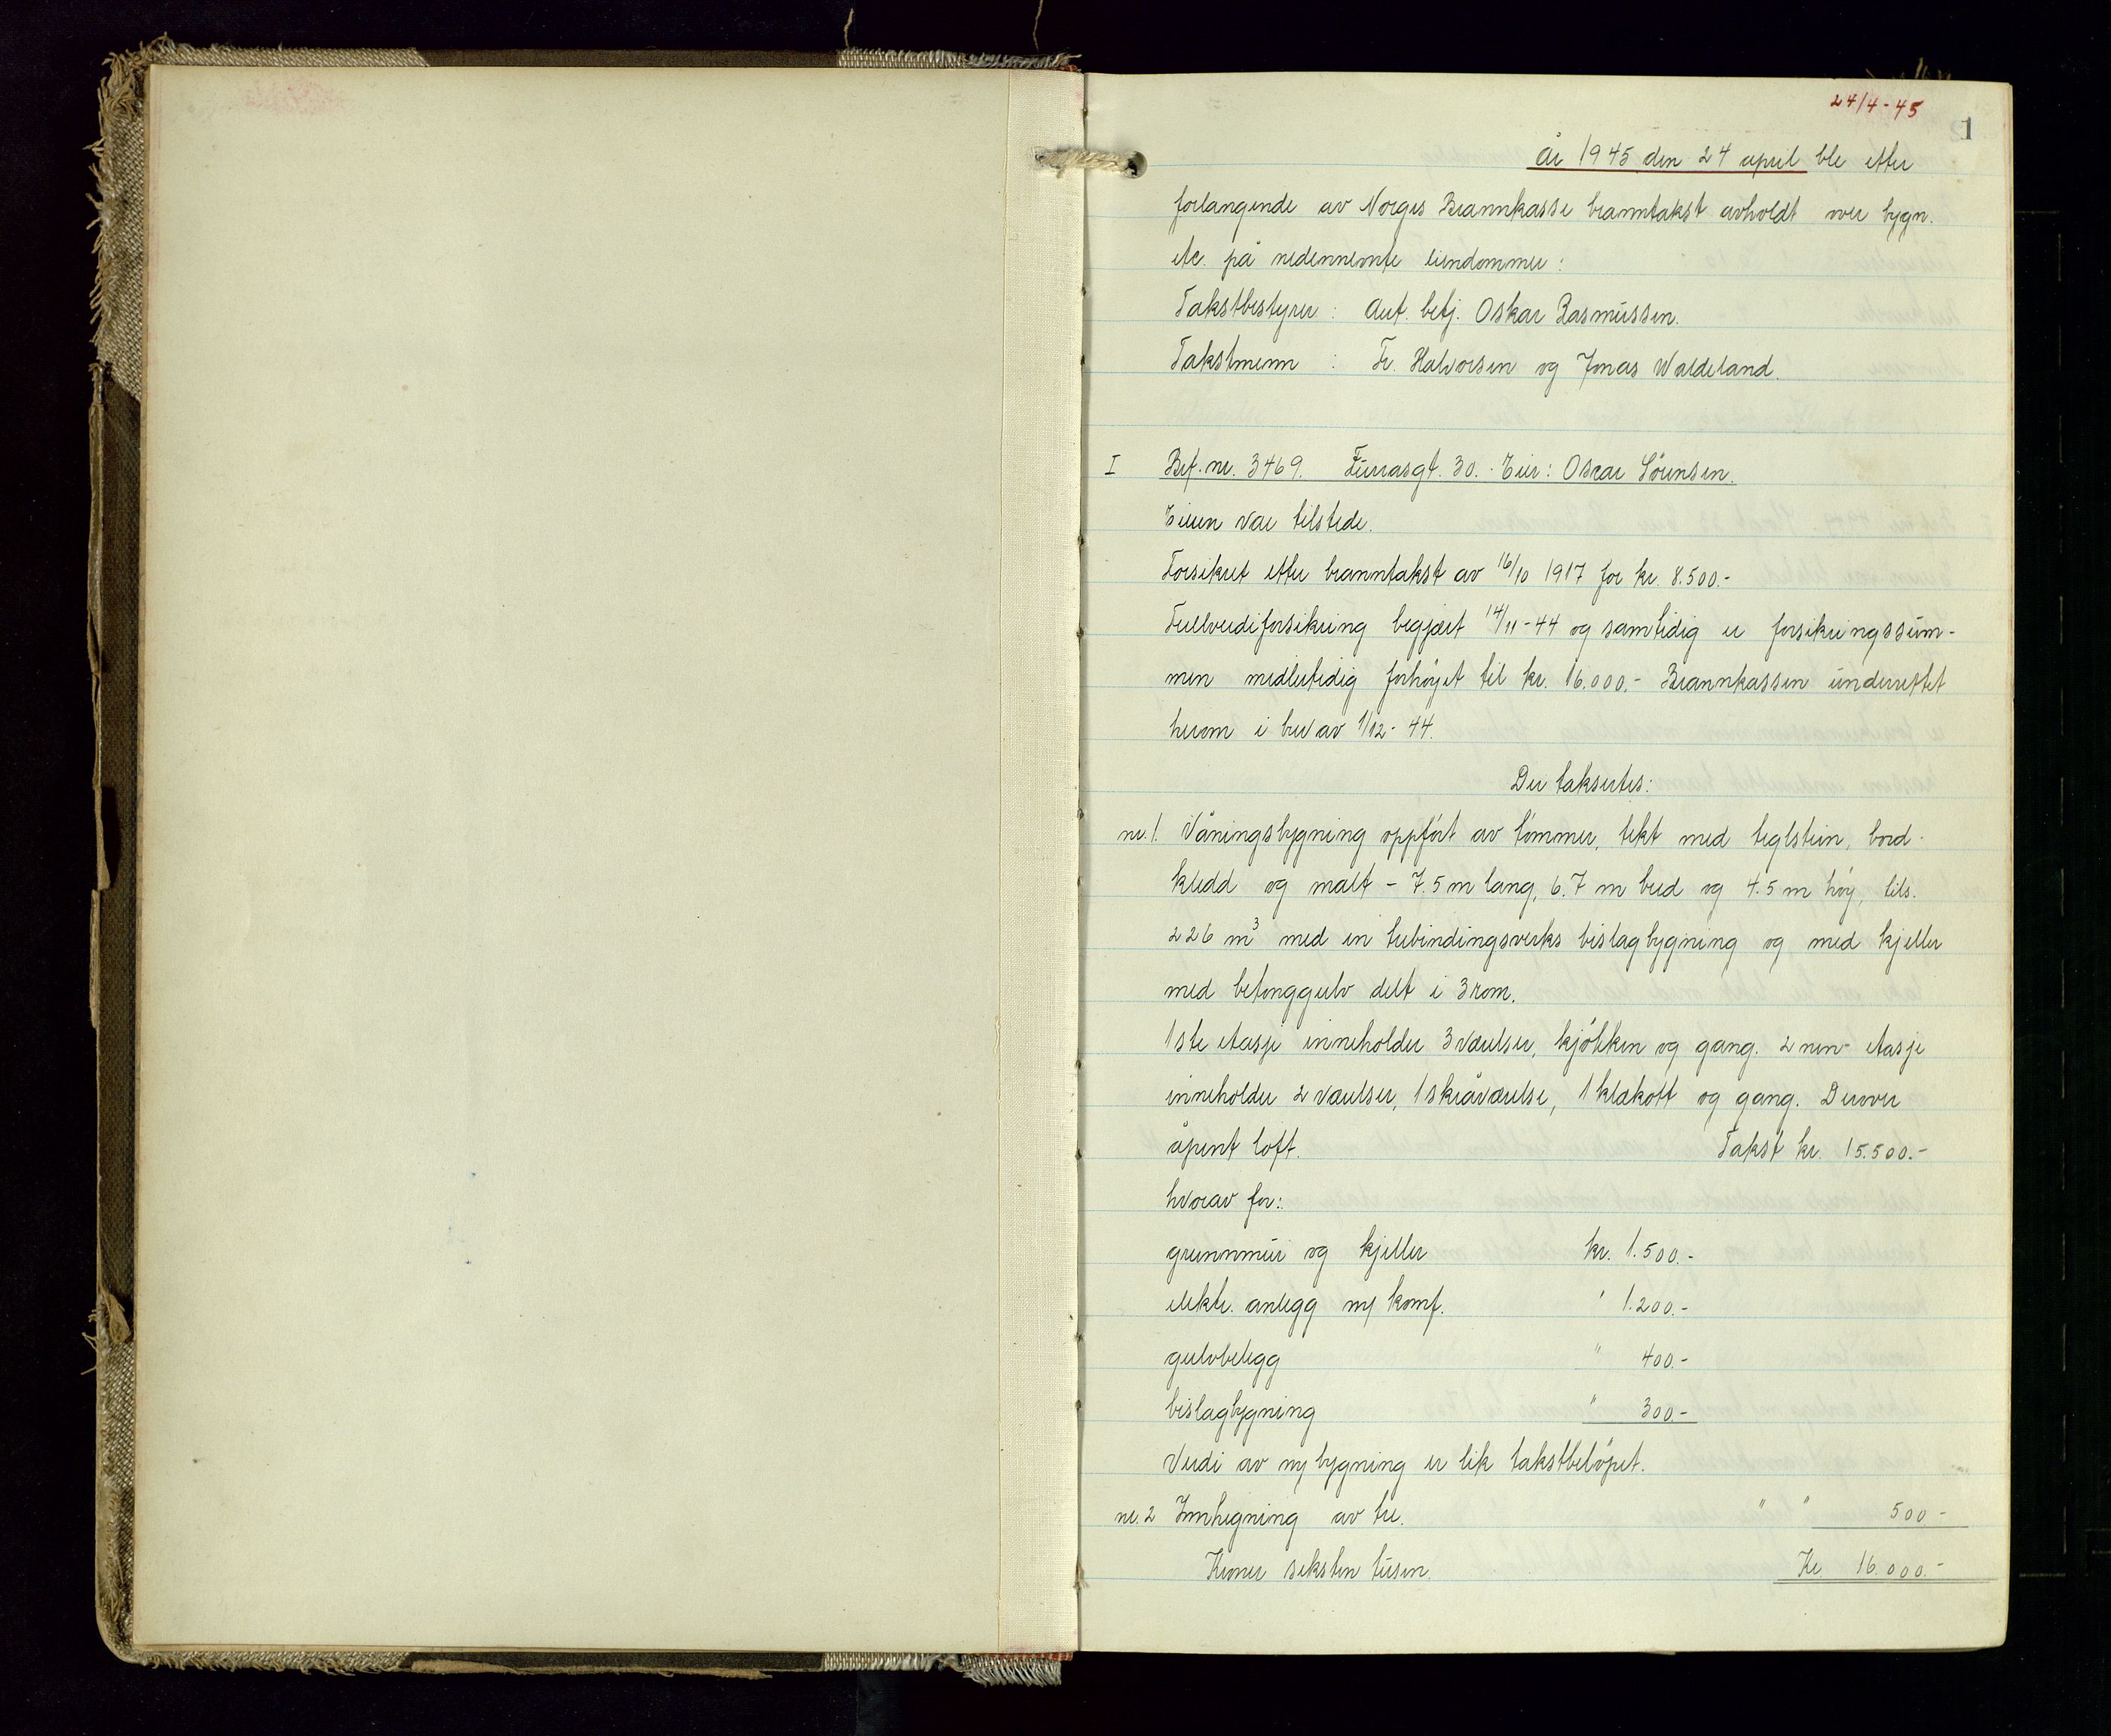 24/4-45
1
År 1945 den 24 april ble etter
forlangende av Norges Brannkasse branntakst avholdt over bygn.
etc. på nedennevnte eiendommer:
Takstbestyrer : Aut. betj. Oskar Rasmussen.
Takstmenn : Fr. Halvorsen og Jonas Waldeland.
I Brf. nr. 3469. Furrasgt. 30. Eier: Oscar Sørensen.
Eieren var tilstede.
Forsikret etter branntakst av 16/10 1917 for kr. 8.500.-
Fullverdiforsikring begjært 14/11-44 og samtidig er forsikringssum-
men midlertidig forhøyet til kr. 16.000.- Brannkassen underrettet
herom i brev av 1/12-44.
Der taksertes:
nr. 1. Våningsbygning oppført av tømmer, tekt med teglstein, bord-
kledd og malt - 7.5 m lang, 6.7 m bred og 4.5 m høy, tils.
226 m³ med en trebindingsverks bislagbygning og med kjeller
med betonggulv delt i 3 rom.
1ste etasje inneholder 3 værelser, kjøkken og gang. 2nen etasje
inneholder 2 værelser, 1 skråværelse, 1 klekott og gang. Derover
åpent loft. Takst kr. 15.500.-
hvorav for:
grunnmur og kjeller kr. 1.500.-
elektr. anlegg m/ komf. " 1.200.-
gulvbelegg " 400.-
bislagbygning " 300.-
Verdi av ny bygning er lik takstbeløpet.
nr. 2 Innhegning av tre. " " 500.-
Kroner seksten tusen. Kr. 16.000.-